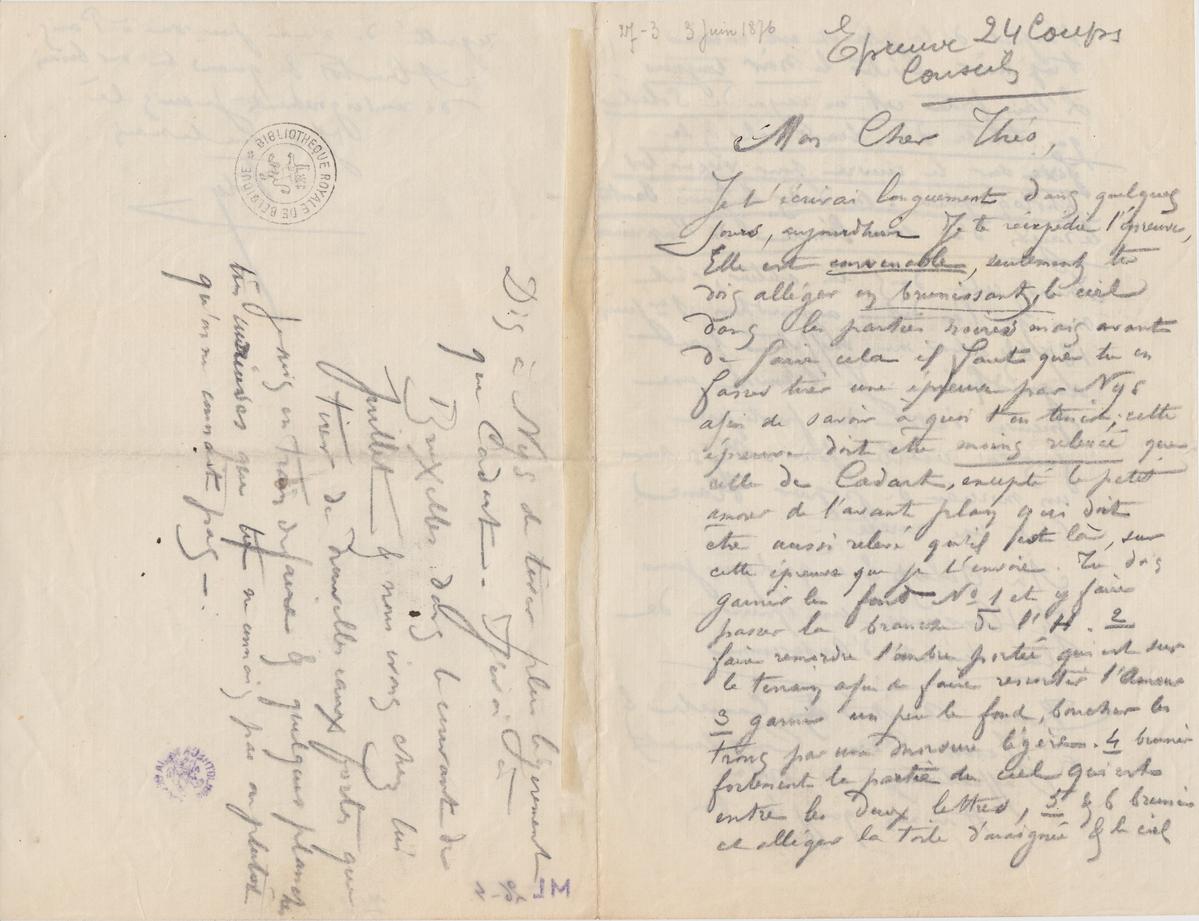 3 Juin 1876
Epreuve 24 Coups
Conseils
Mon Cher Théo,
Je t'écrirai longuement dans quelques
jours, aujourdhui Je te réexpédie l'épreuve,
Elle est convenable, seulement tu
dois alléger en brunissant, le ciel
dans les parties noires mais avant
de faire cela il faut que tu en
fasses tirer une épreuve par Nys
afin de savoir à quoi t'en tenir, cette
épreuve doit être moins relevée que
celle de Cadart, excepté le petit
amour de l'avant plan qui doit
être aussi relevé qu'il est là, sur
cette épreuve que je t'envoie. Tu dois
garnir le fond No 1 et y faire
passer la branche de l'H. 2
faire remordre l'ombre portée qui est sur
le terrain afin de faire ressortir l'Amour
3 garnir un peu le fond, boucher les
trous par une morsure légère. 4 brunir
fortement la partie du ciel qui est
entre les deux lettres, 5 & 6 brunir
et alléger la toile d'araignée & le ciel
BIBLIOTHEQUE ROYALE DE BELGIQUE
Dis à Nys de tirer plus légèrement
que Cadart. J'irai à
Bruxelles dans le courant de
Juillet & nous irons chez lui
tirer de nouvelles eaux fortes que
je suis en train de faire & quelques planches
très curieuses que tu ne connais pas ou plutôt
qu'on ne connait pas.